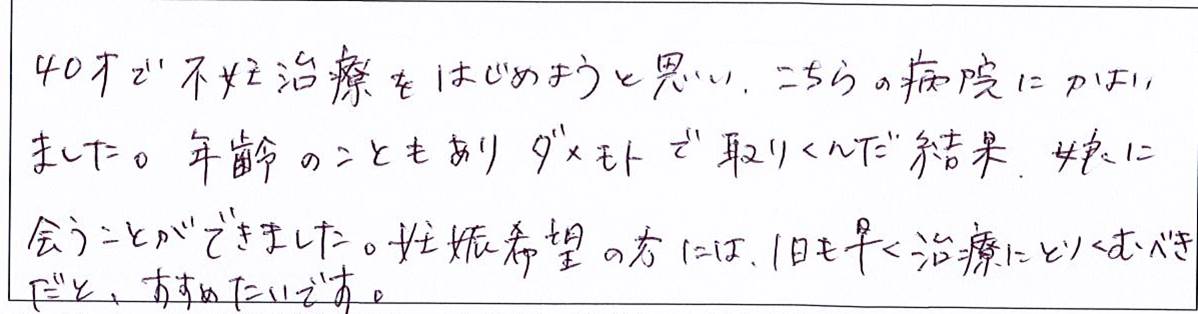 40才で不妊治療をはじめようと思い、こちらの病院にかよい
ました。年齢のこともありダメモトで取りくんだ結果、娘に
会うことができました。妊娠希望の方には、1日も早く治療にとりくむべき
だと、おすすめしたいです。